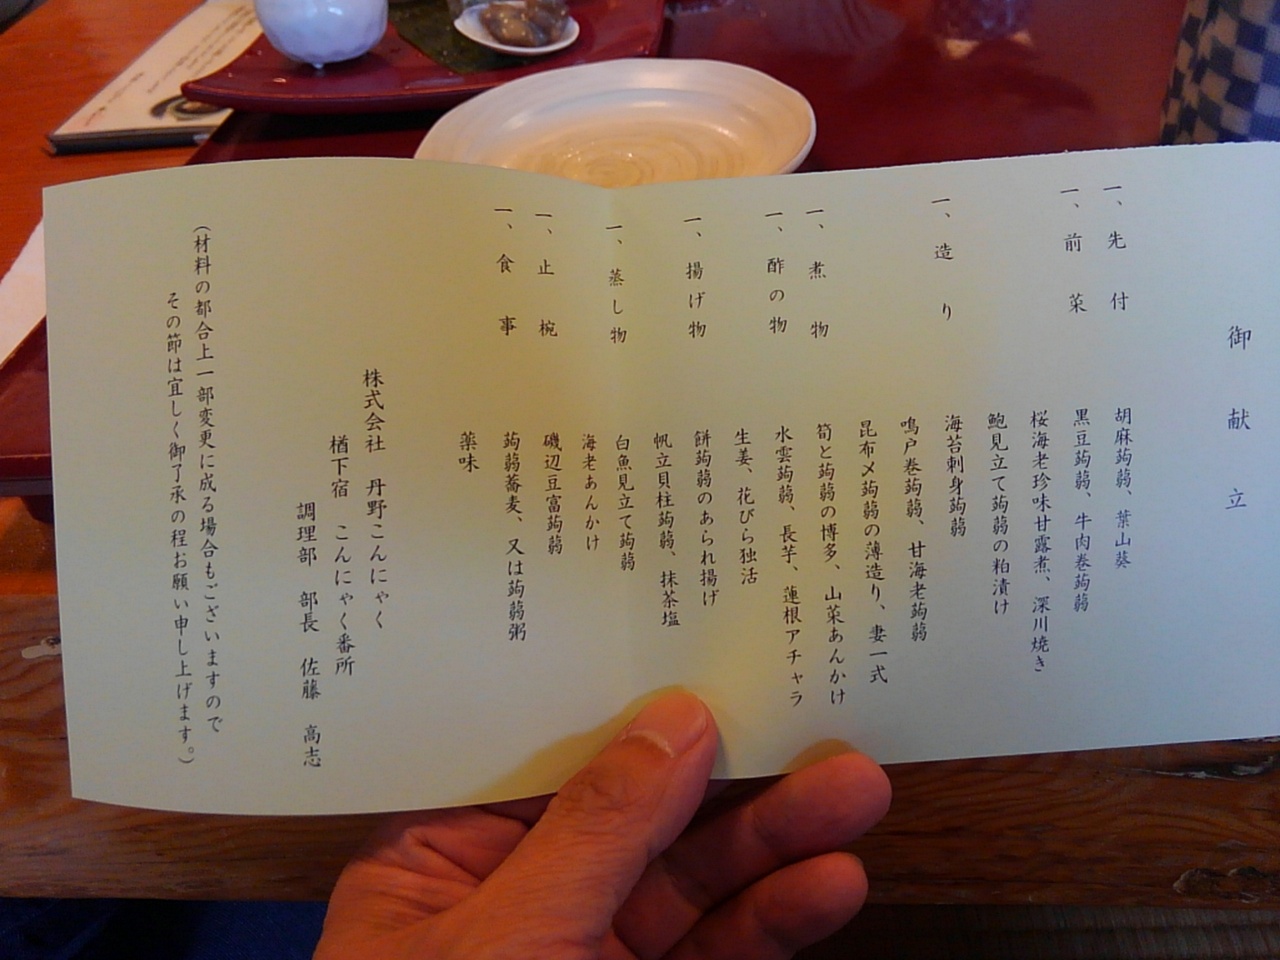 御献立
一、先付
胡麻蒟蒻、葉山葵
一、前菜
黒豆蒟蒻、牛肉巻蒟蒻
桜海老珍味甘露煮、深川焼き
鮑見立て蒟蒻の粕漬け
一、造り
海苔刺身蒟蒻
鳴戸巻蒟蒻、甘海老蒟蒻
昆布〆蒟蒻の薄造り、妻一式
一、煮物
筍と蒟蒻の博多、山菜あんかけ
一、酢の物
水雲蒟蒻、長芋、蓮根アチャラ
生姜、花びら独活
一、揚げ物
餅蒟蒻のあられ揚げ
帆立貝柱蒟蒻、抹茶塩
一、蒸し物
白魚見立て蒟蒻
海老あんかけ
一、止椀
磯辺豆富蒟蒻
一、食事
蒟蒻蕎麦、又は蒟蒻粥
薬味
株式会社 丹野こんにゃく
楢下宿 こんにゃく番所
調理部 部長 佐藤 高志
(材料の都合上一部変更に成る場合もございますので
その節は宜しく御了承の程お願い申し上げます。)